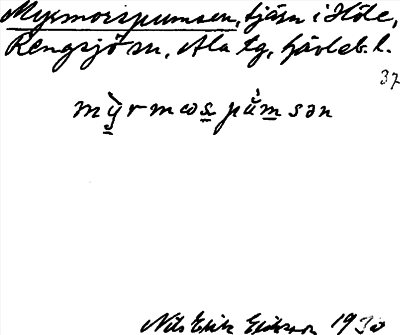 Myrmorspumsen, tjärn i Höle,
Rengsjö sn, Ala tg, Gävleb. l.
37
mỳrmωs pùmsən
Nils Erik Eriksson 1930